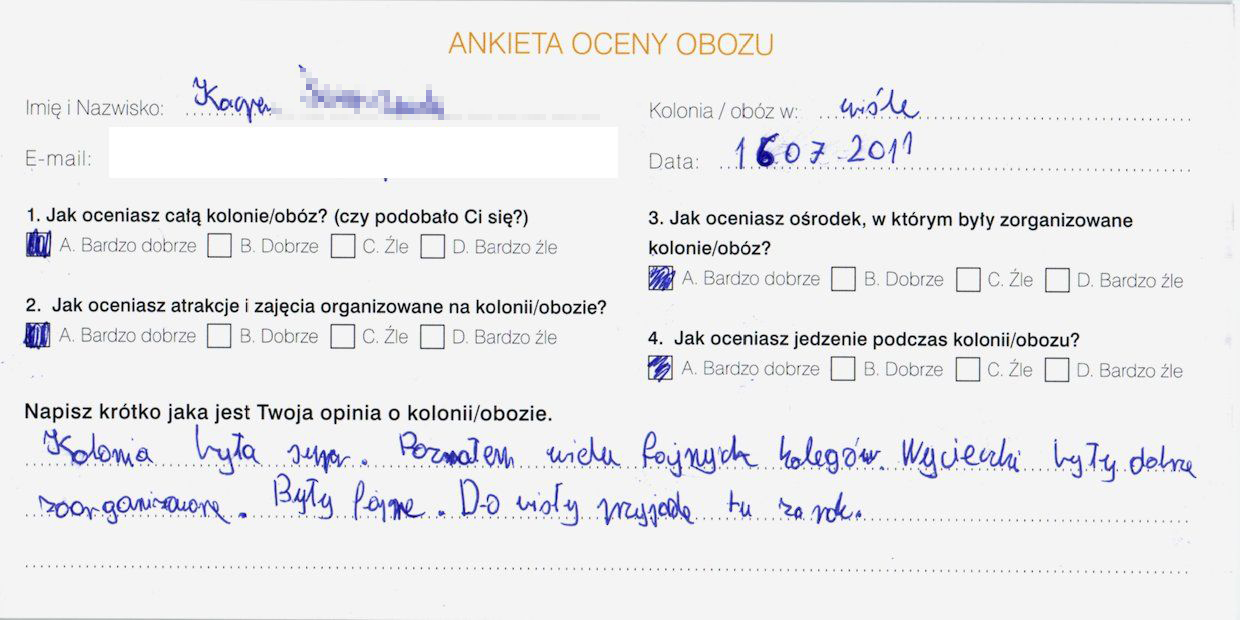 ANKIETA OCENY OBOZU
Imię i Nazwisko: Kacper
Kolonia / obóz w: wiśle
E-mail:
Data: 16 07 2011
1. Jak oceniasz całą kolonie/obóz? (czy podobało Ci się?)
A. Bardzo dobrze B. Dobrze C. Źle D. Bardzo źle
2. Jak oceniasz atrakcje i zajęcia organizowane na kolonii/obozie?
A. Bardzo dobrze B. Dobrze C. Źle D. Bardzo źle
3. Jak oceniasz ośrodek, w którym były zorganizowane
kolonie/obóz?
A. Bardzo dobrze B. Dobrze C. Źle D. Bardzo źle
4. Jak oceniasz jedzenie podczas kolonii/obozu?
A. Bardzo dobrze B. Dobrze C. Źle D. Bardzo źle
Napisz krótko jaka jest Twoja opinia o kolonii/obozie.
Kolonia była super. Poznałem wielu fajnych kolegów. Wycieczki były dobrze
zoorganizowane. Były fajne. Do wisły przyjadę tu za rok.